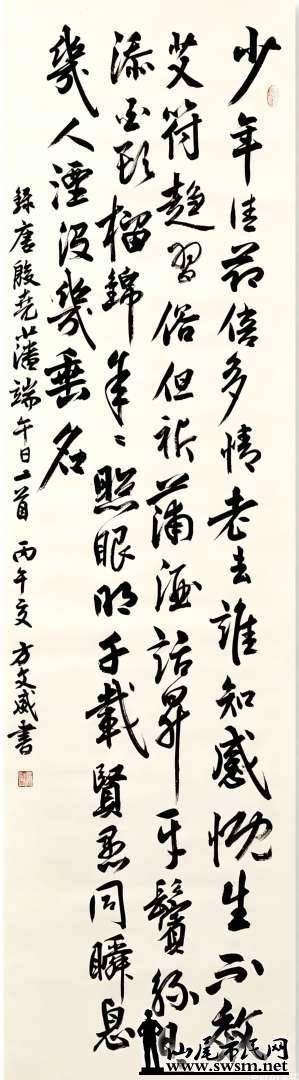 少年佳節倍多情老去誰知感慨生不效
艾符趨習俗但祈蒲酒話昇平鬢絲日
添白頭榴錦年〻照眼明千載賢愚同瞬息
幾人湮没幾垂名
錄唐殷堯藩端午日一首 丙午夏 方文威書
汕尾市民网
www.swsm.net